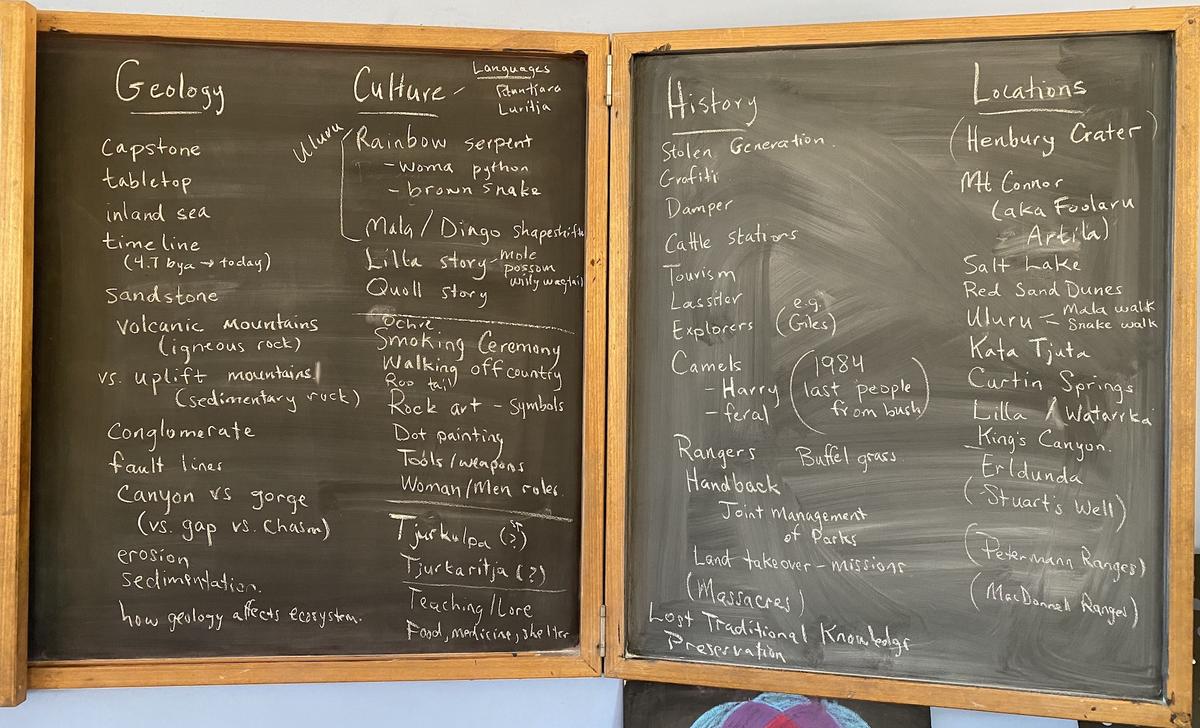 Geology
capstone
tabletop
inland sea
timeline
(4.7 bya → today)
Sandstone
volcanic mountains
(igneous rock)
vs. uplift mountains
(sedimentary rock)
Conglomerate
fault lines
Canyon vs gorge
(vs. gap vs. chasm)
erosion
sedimentation.
how geology affects ecosystem.
Culture -
Languages
Pitantjara
Luritja
Uluru
Rainbow serpent
- woma python
- brown snake
Mala / Dingo shapeshift
Lilla story - mole
possom
willy wagtail
Quoll story
Ochre
Smoking Ceremony
Walking off country
Roo tail
Rock art - symbols
Dot painting
Tools/weapons
Woman/Men roles.
Tjurkulpa (?)
Tjurkaritja (?)
Teaching/Lore
Food, medicine, shelter
History
Stolen Generation.
Grafiti
Damper
Cattle stations
Tourism
Lassiter
Explorers (e.g. Giles)
Camels
- Harry
- feral
(1984
last people
from bush)
Rangers
Buffel grass
Handback
Joint Management
of Parks
Land takeover - missions
(Massacres)
Lost Traditional Knowledge
Preservation
Locations
(Henbury Crater)
Mt Connor
(aka Foolaru
Artila)
Salt Lake
Red Sand Dunes
Uluru < Mala walk
Snake walk
Kata Tjuta
Curtin Springs
Lilla / Watarrka
King's Canyon.
Erldunda
(-Stuart's Well)
(Petermann Ranges)
(MacDonnell Ranges)